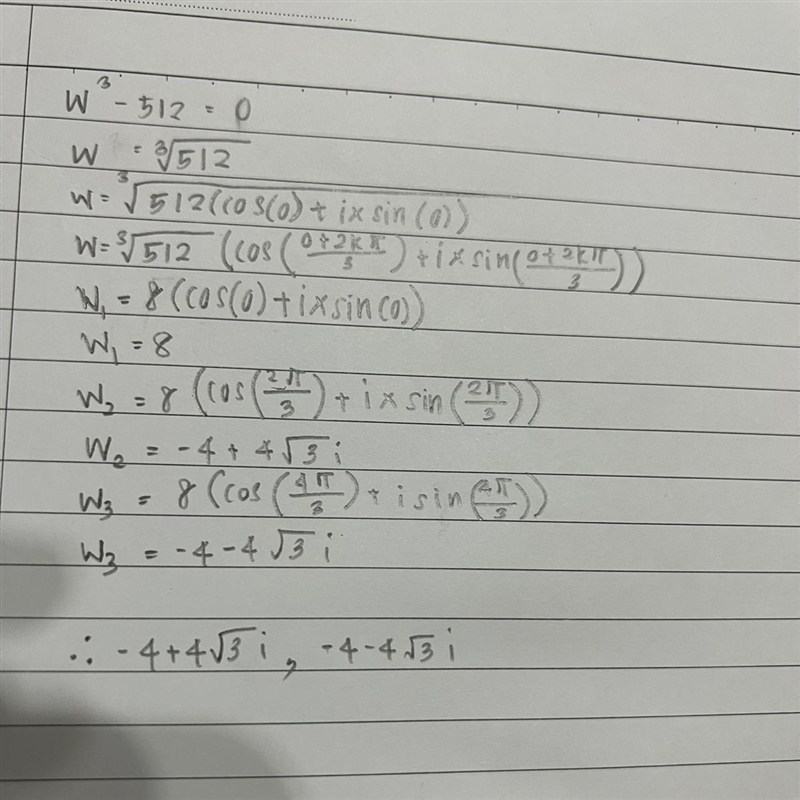 W³ - 512 = 0
W = ∛512
W = ∛512(cos(0) + i×sin(0))
W = ∛512 (cos((0+2kπ)/3) + i×sin((0+2kπ)/3))
W₁ = 8(cos(0) + i×sin(0))
W₁ = 8
W₂ = 8(cos(2π/3) + i×sin(2π/3))
W₂ = -4 + 4√3 i
W₃ = 8(cos(4π/3) + i sin(4π/3))
W₃ = -4 - 4√3 i
∴ -4+4√3 i, -4-4√3 i